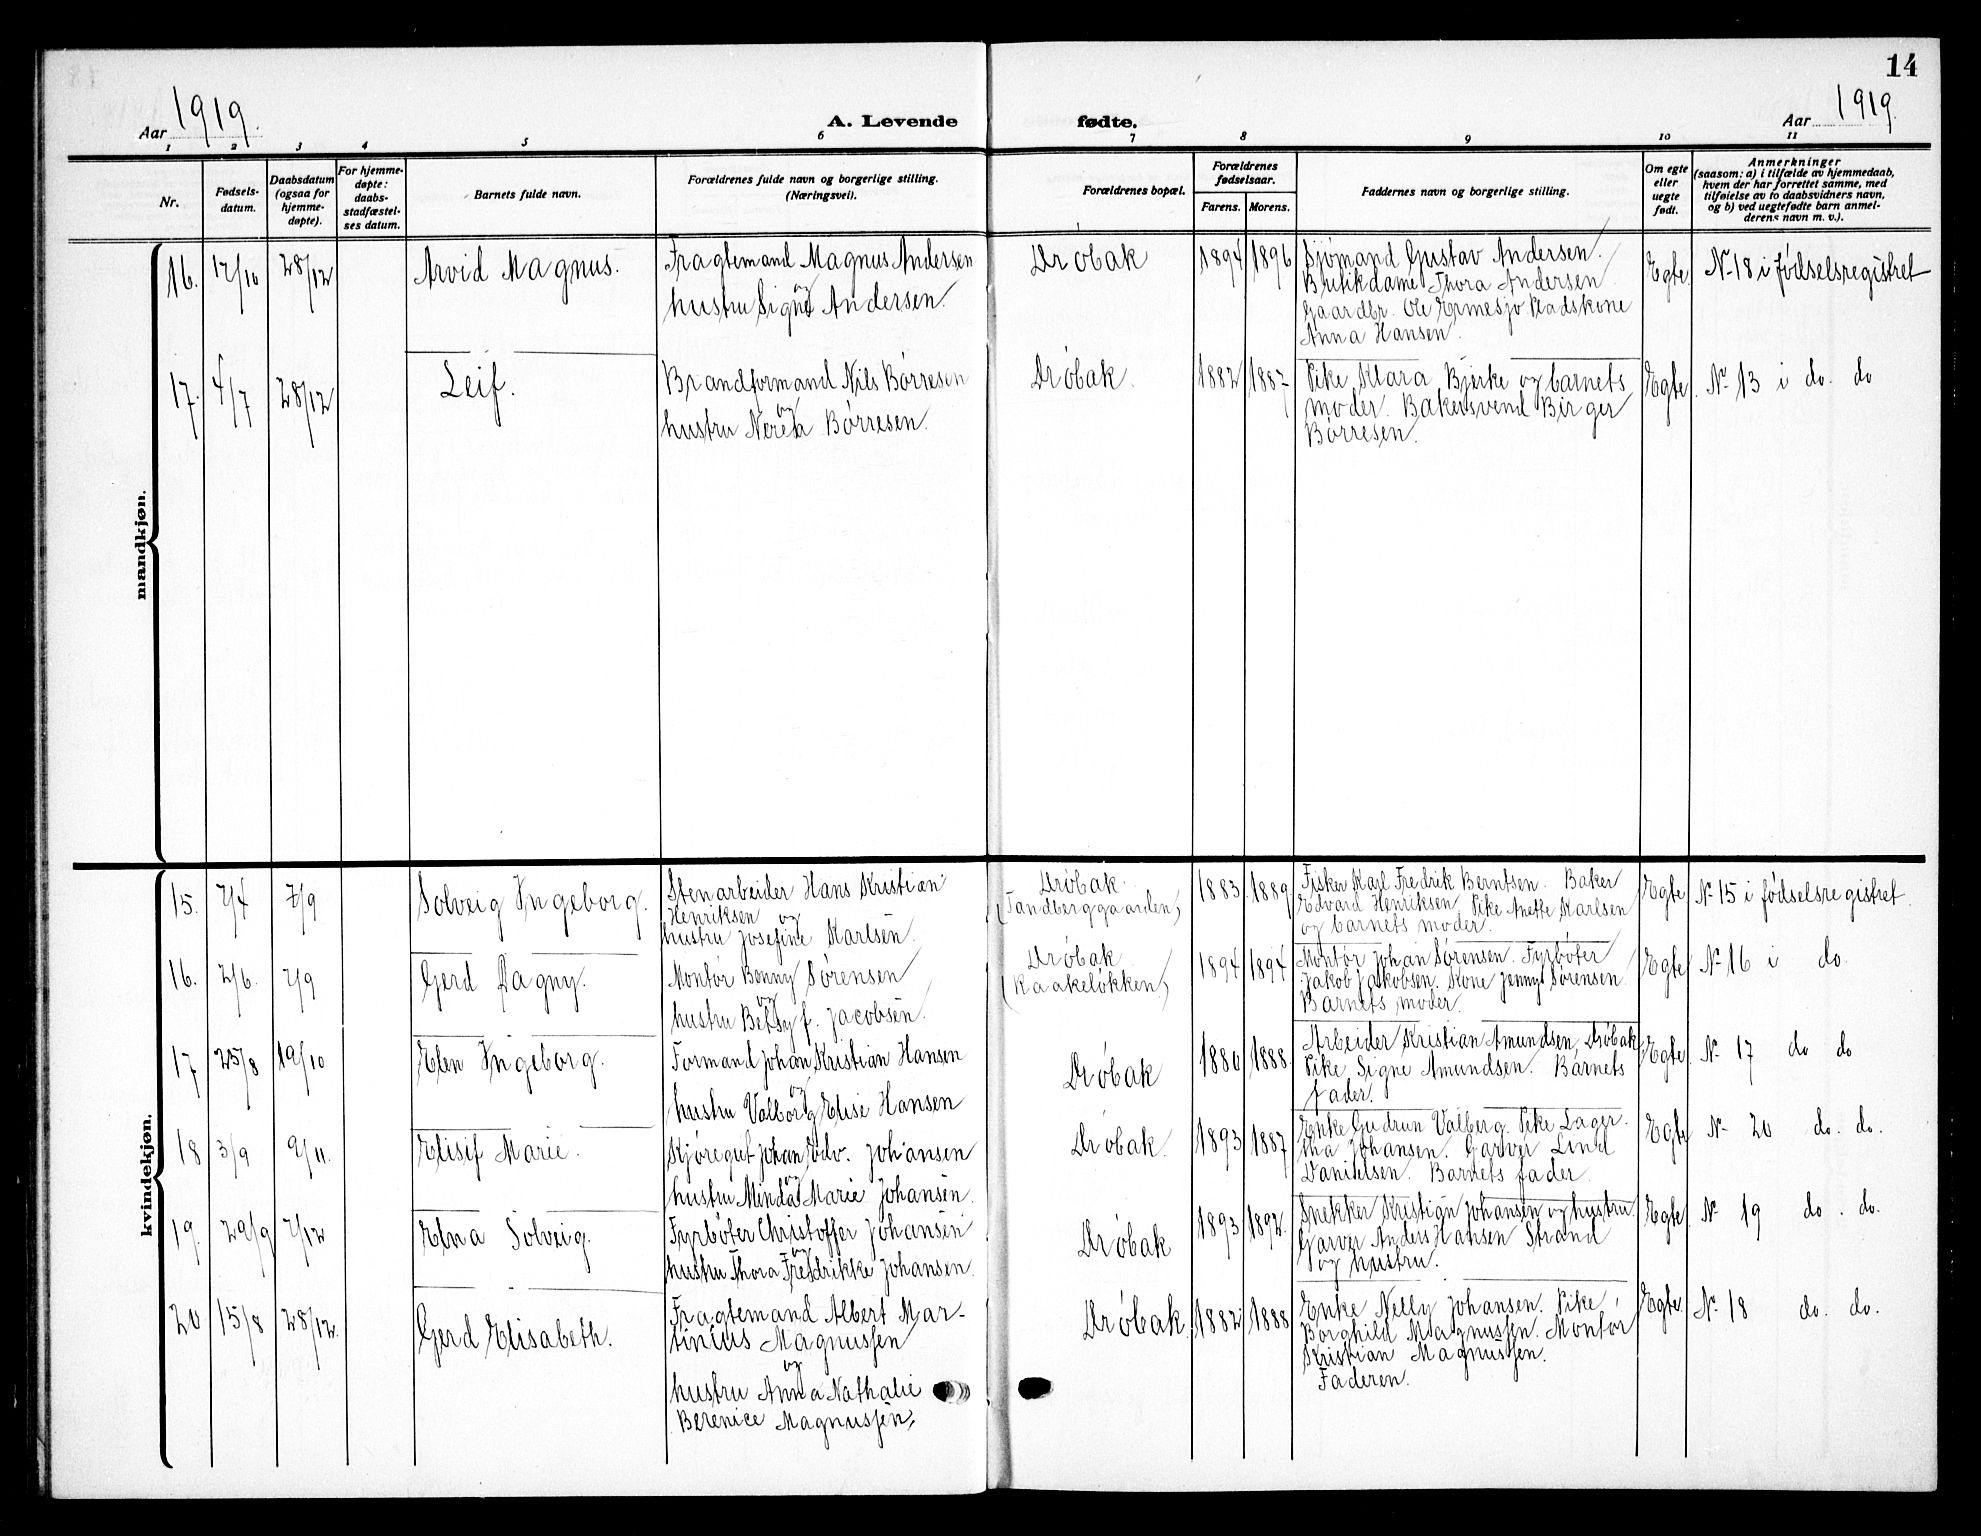 14
Aar 1919.
A. Levende fødte.
Aar 1919.
1 2 3 4 5 6 7 8 9 10 11
Nr.
Fødsels-
datum.
Daabsdatum
(ogsaa for
hjemme-
døpte).
For hjemme-
døpte:
daabs-
stadfæstel-
ses datum.
Barnets fulde navn.
Forældrenes fulde navn og borgerlige stilling.
(Næringsvei).
Forældrenes bopæl.
Forældrenes
fødselsaar.
Farens. Morens.
Faddernes navn og borgerlige stilling.
Om egte
eller
uegte
født.
Anmerkninger
(saasom: a) i tilfælde av hjemmedaab,
hvem der har forrettet samme, med
tilføielse av to daabsvidners navn,
og b) ved uegtefødte barn anmel-
derens navn m. v.).
mandkjøn.
16. 17/10 28/12 Arvid Magnus.
Fragtemand Magnus Andersen
og
hustru Signe Andersen.
Drøbak 1894 1896
Sjømand Gustav Andersen.
Butikdame Thora Andersen
Gaardbr. Ole Ermesjø Pladskone
Anna Hansen.
Egte. No 18 i fødselsregistret
17. 4/7 28/12 Leif.
Brandformand Nils Børresen
og
hustru Nerea Børresen.
Drøbak. 1882 1887
Pike Klara Bjerke og barnets
moder. Bakersvend Birger
Børresen.
Egte. No 13 i do. do
kvindekjøn.
15. 2/4 7/9 Solveig Ingeborg.
Stenarbeider Hans Kristian
Henriksen og
hustru Josefine Karlsen.
Drøbak.
(Tandberggaarden)
1883 1889
Fisker Karl Fredrik Berntsen. Baker
Edvard Henriksen Pike Anette Karlsen
og barnets moder.
Egte No 15 i fødselsregistret.
16. 2/6. 7/9 Gerd Dagny.
Montør Bonny Sørensen
og
hustru Betsy f. Jacobsen.
Drøbak.
(Kaakeløkken)
1894 1894
Montør Johan Sørensen. Fyrbøter
Jakob Jakobsen. Kone Jenny Sørensen
Barnets moder.
Egte No 16 i do.
17 25/8 19/10 Elen Ingeborg.
Formand Johan Kristian Hansen
og
hustru Valborg Elise Hansen
Drøbak 1886 1888.
Arbeider Kristian Amundsen, Drøbak
Pike Signe Amundsen. Barnets
fader.
Egte. No 17 do do
18 3/9 9/11. Elisif Marie.
Kjøregut Johan Edv. Johansen
og
hustru Minda Marie Johansen.
Drøbak. 1893 1887
Enke Gudrun Valberg. Pike Lager-
tha Johansen. Garver Lind
Danielsen. Barnets fader.
Egte No 20 do. do.
19. 29/9 7/12 Elna Solveig.
Fyrbøter Christoffer Johansen
og
hustru Thora Fredrikke Johansen.
Drøbak 1893 1892.
Snekker Kristian Johansen og hustru
Garver Anders Hansen Strand
og hustru.
Egte. No 19 do. do.
20 15/8 28/12. Gerd Elisabeth.
Fragtemand Albert Mar-
tinius Magnussen
og
hustru Anna Nathalie
Berenice Magnussen,
Drøbak. 1882 1888
Enke Nelly Johansen. Pike
Borghild Magnussen. Montør
Kristian Magnussen.
Faderen.
Egte. No 18 do. do.